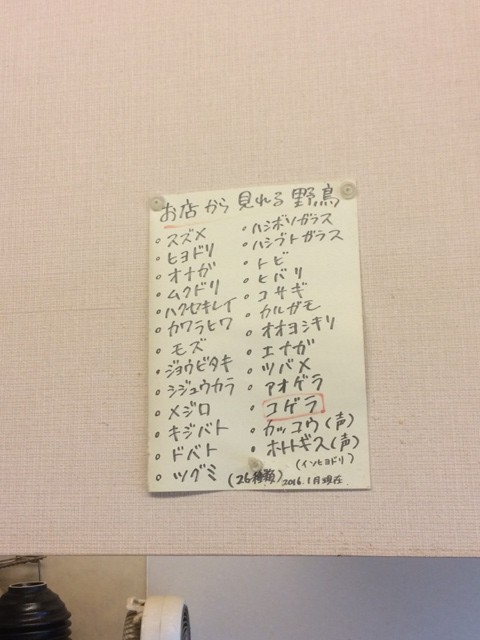 お店から見れる野鳥
・スズメ
・ヒヨドリ
・オナガ
・ムクドリ
・ハクセキレイ
・カワラヒワ
・モズ
・ジョウビタキ
・シジュウカラ
・メジロ
・キジバト
・ドバト
・ツグミ
・ハシボソガラス
・ハシブトガラス
・トビ
・ヒバリ
・コサギ
・カルガモ
・オオヨシキリ
・エナガ
・ツバメ
・アオゲラ
・コゲラ
・カッコウ(声)
・ホトトギス(声)
(イソヒヨドリ)
(26種類)
2016.1月現在